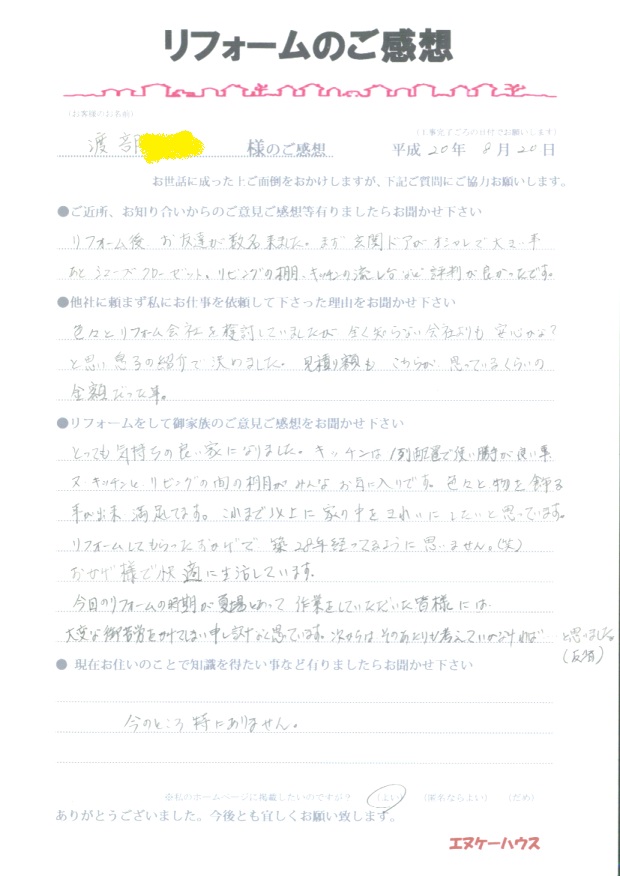 リフォームのご感想
(お客様のお名前)
(工事完了ごろの日付でお願いします)
渡部 様のご感想 平成20年8月20日
お世話に成った上ご面倒をおかけしますが、下記ご質問にご協力お願いします。
●ご近所、お知り合いからのご意見ご感想等有りましたらお聞かせ下さい
リフォーム後、お友達が数名来ました。まず玄関ドアがオシャレで大きい事
あとシューズクローゼット。リビングの棚、キッチンの流し台など評判が良かったです。
●他社に頼まず私にお仕事を依頼して下さった理由をお聞かせ下さい
色々とリフォーム会社を検討していましたが全く知らない会社よりも安心かな?
と思い息子の紹介で決めました。見積り額もこちらが思っているくらいの
金額だった事。
●リフォームをして御家族のご意見ご感想をお聞かせ下さい
とっても気持ちの良い家になりました。キッチンは1列配置で使い勝手が良い事
又キッチンとリビングの間の棚がみんなお気に入りです。色々と物を飾る
事が出来満足してます。これまで以上に家の中をきれいにしたいと思っています。
リフォームしてもらったおかげで築28年経ってるように思いません。(笑)
おかげ様で快適に生活しています。
今回のリフォームの時期が夏場とあって作業をしていただいた皆様には
大変な御苦労をかけてしまい申し訳なく思ています。次からはそのあたりも考えていかなければ…と思いました
(反省)
● 現在お住いのことで知識を得たい事など有りましたらお聞かせ下さい
今のところ特にありません。
※私のホームページに掲載したいのですが? (よい) (匿名ならよい) (だめ)
ありがとうございました。今後とも宜しくお願い致します。
エヌケーハウス